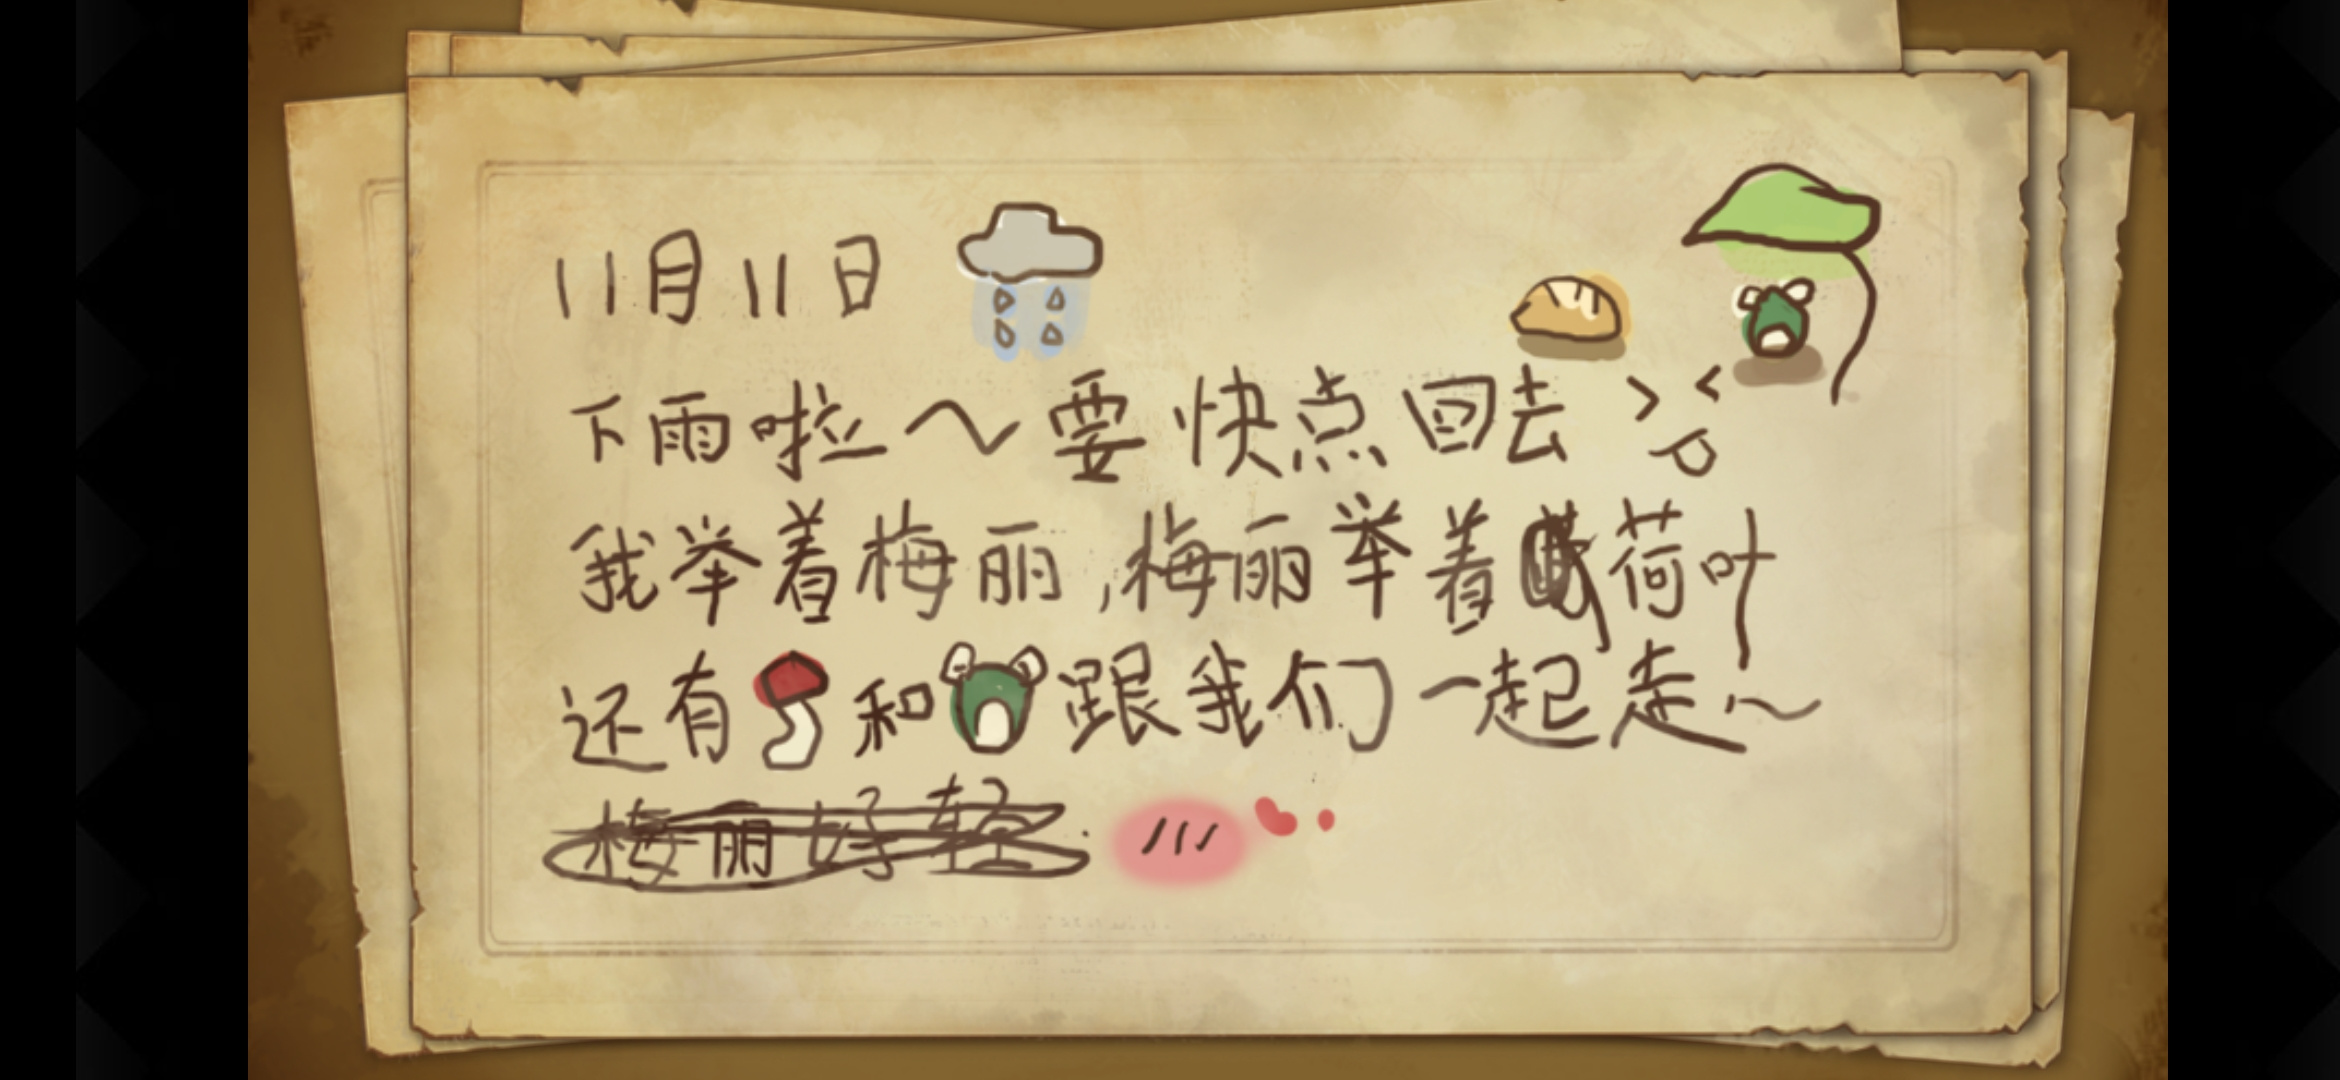 11月11日
下雨啦～要快点回去
我举着梅丽,梅丽举着荷叶
还有和跟我们一起走~
梅丽好轻